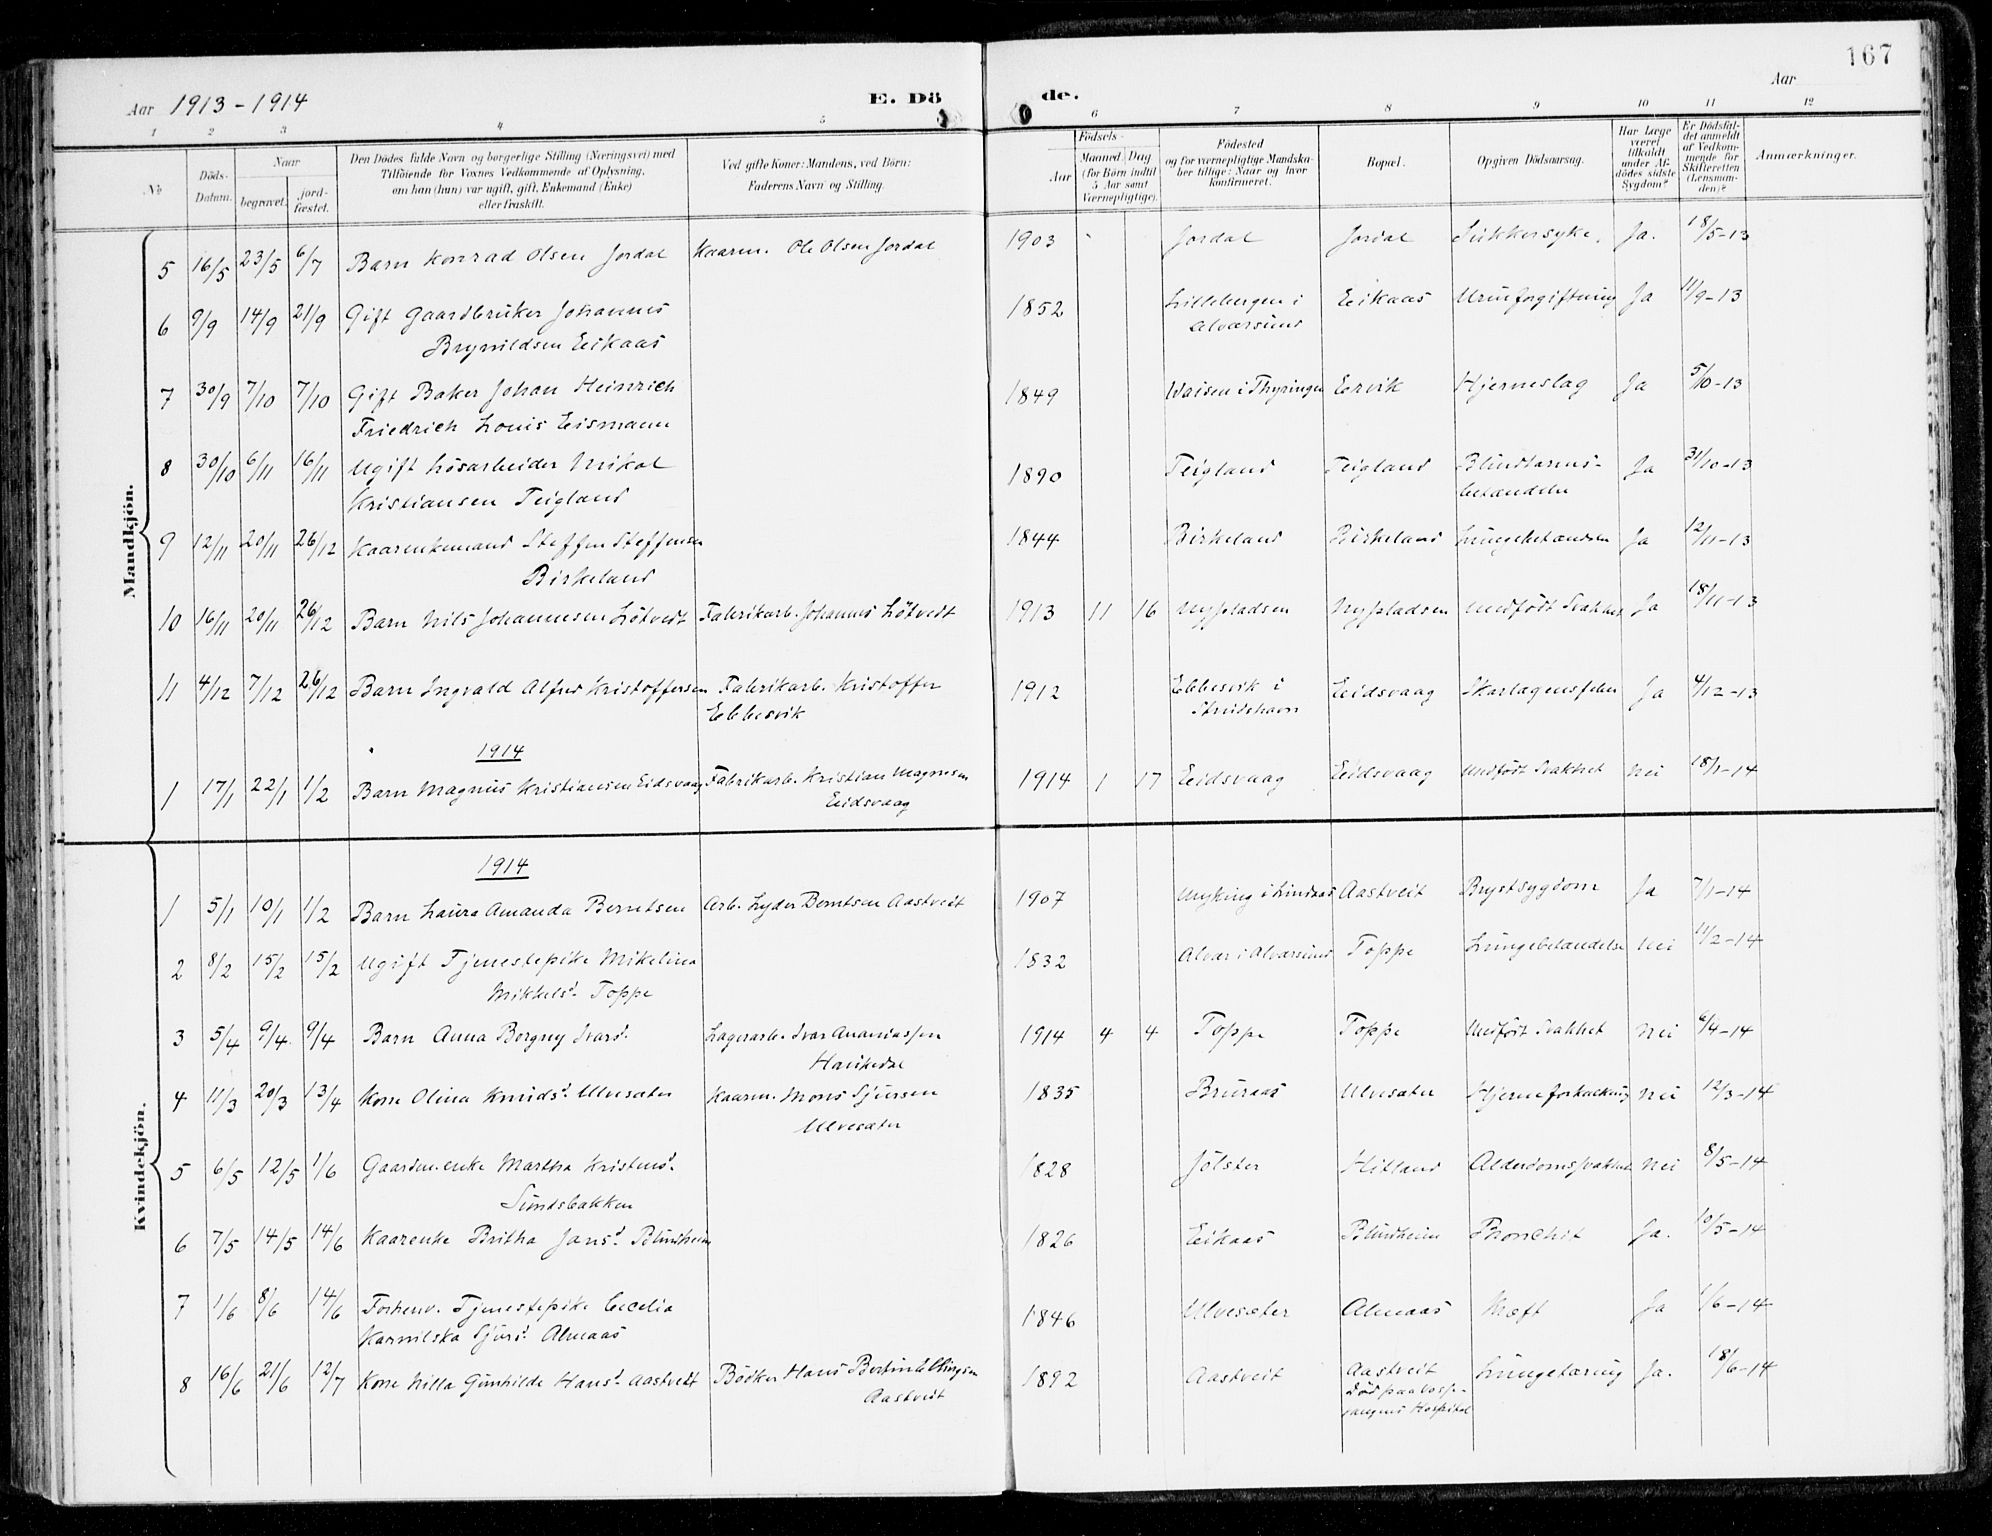 167
Aar 1913 - 1914 E. Dö de. Aar
1 2 3 4 5 6 7 8 9 10 11 12
No
Döds-Datum.
Naar
begravet.
jord-fæstet.
Den Dödes fulde Navn og borgerlige Stilling (Næringsvei) med
Tilföiende for Voxnes Vedkommende af Oplysning,
om han (hun) var ugift, gift, Enkemand (Enke)
eller fraskilt.
Ved gifte Koner: Mandens, ved Börn:
Faderens Navn og Stilling.
Födsels-
Aar
Maaned. Dag
(for Börn indtil
5 Aar samt
Værnepligtige).
Födested
og for værnepligtige Mandska-
ber tillige: Naar og hvor
konfirmeret.
Bopæl.
Opgiven Dödsaarsag.
Har Læge
været
tilkaldt
under Af-
dödes sidste
Sygdom?
Er Dödsfal-
det anmeldt
af Vedkom-
mende for
Skifteretten
(Lensman-
den)?
Anmærkninger.
Mandkjön.
5 16/5 23/5 6/7 Barn Konrad Olsen Jordal Kaarm. Ole Olsen Jordal 1903 Jordal Jordal Sukkersyke. Ja. 18/5-13
6 9/9 14/9 21/9 Gift Gaardbruker Johannes 1852 Lillebergen i Eikaas Urinforgiftning Ja 11/9-13
Brynildsen Eikaas Alversund
7 30/9 7/10 7/10 Gift Baker Johan Heinrich 1849 Waisen i Thyringen Eervik Hjerneslag Ja 5/10-13
Friedrich Louis Eismann
8 30/10 6/11 16/11 Ugift Løsarbeider Nikol 1890 Teigland Teigland Blindtarms- Ja 31/10-13
Kristiansen Teigland betændelse
9 12/11 20/11 26/12 Kaarenkemand Steffen Steffensen 1844 Birkeland Birkeland Lungebetændelse Ja 12/11-13
Birkeland
10 16/11 20/11 26/12 Barn Nils Johannesen Løtvedt Fabrikarb. Johannes Løtvedt 1913 11 16 Nypladsen Nypladsen Medfødt Svakhet Ja 18/11-13
11 4/12 7/12 26/12 Barn Ingvald Alfred Kristoffersen Fabrikarb. Kristoffer 1912 Ebbesvik i Eidsvaag Skarlagensfeber Ja 4/12-13
Ebbesvik Strudshavn
1914
1 17/1 22/1 1/2 Barn Magnus Kristiansen Eidsvaag Fabrikarb. Kristian Magnesen 1914 1 17 Eidsvaag Eidsvaag Medfødt Svakhet Nei 18/1-14
Eidsvaag
Kvindekjön.
1914
1 5/1 10/1 1/2 Barn Laura Amanda Berntsen Arb. Lyder Berntsen Aastveit 1907 Myking i Lindaas Aastveit Brystsygdom Ja 7/1-14
2 8/2 15/2 15/2 Ugift Tjenestepike Mikelina 1832 Alver i Alversund Toppe Lungebetændelse Nei 11/2-14
Mikkelsd. Toppe
3 5/4 9/4 9/4 Barn Anna Borgny Ivarsd. Lagerarb. Ivar Ananiassen 1914 4 4 Toppe Toppe Medfødt Svakhet Nei 6/4-14
Haukedal
4 11/3 20/3 13/4 Kone Olina Knudsd. Ulvesæter Kaarm. Mons Sjursen 1835 Bruraas Ulvesæter Hjerneforkalkning Nei 12/3-14
Ulvesæter
5 6/5 12/5 1/6 Gaardm.enke Martha Kristensd. 1828 Jølster Hitland Alderdomssvakhet Nei 8/5-14
Sundsbakken
6 7/5 14/5 14/6 Kaarenke Britha Jansd. Blindheim 1826 Eikaas Blindheim Bronchit Ja. 10/5-14
7 1/6 8/6 14/6 Forhenv. Tjenestepike Cecelia 1846 Ulvesæter Almaas Kræft Ja 1/6-14
Karnilska Sjursd. Almaas
8 16/6 21/6 12/7 Kone Nilla Gunhilde Hansd. Aastveit Bødker Hans Bertin Ellingsen 1892 Aastveit Aastveit Lungetæring Ja. 18/6-14
Aastveit død paa
Hospital